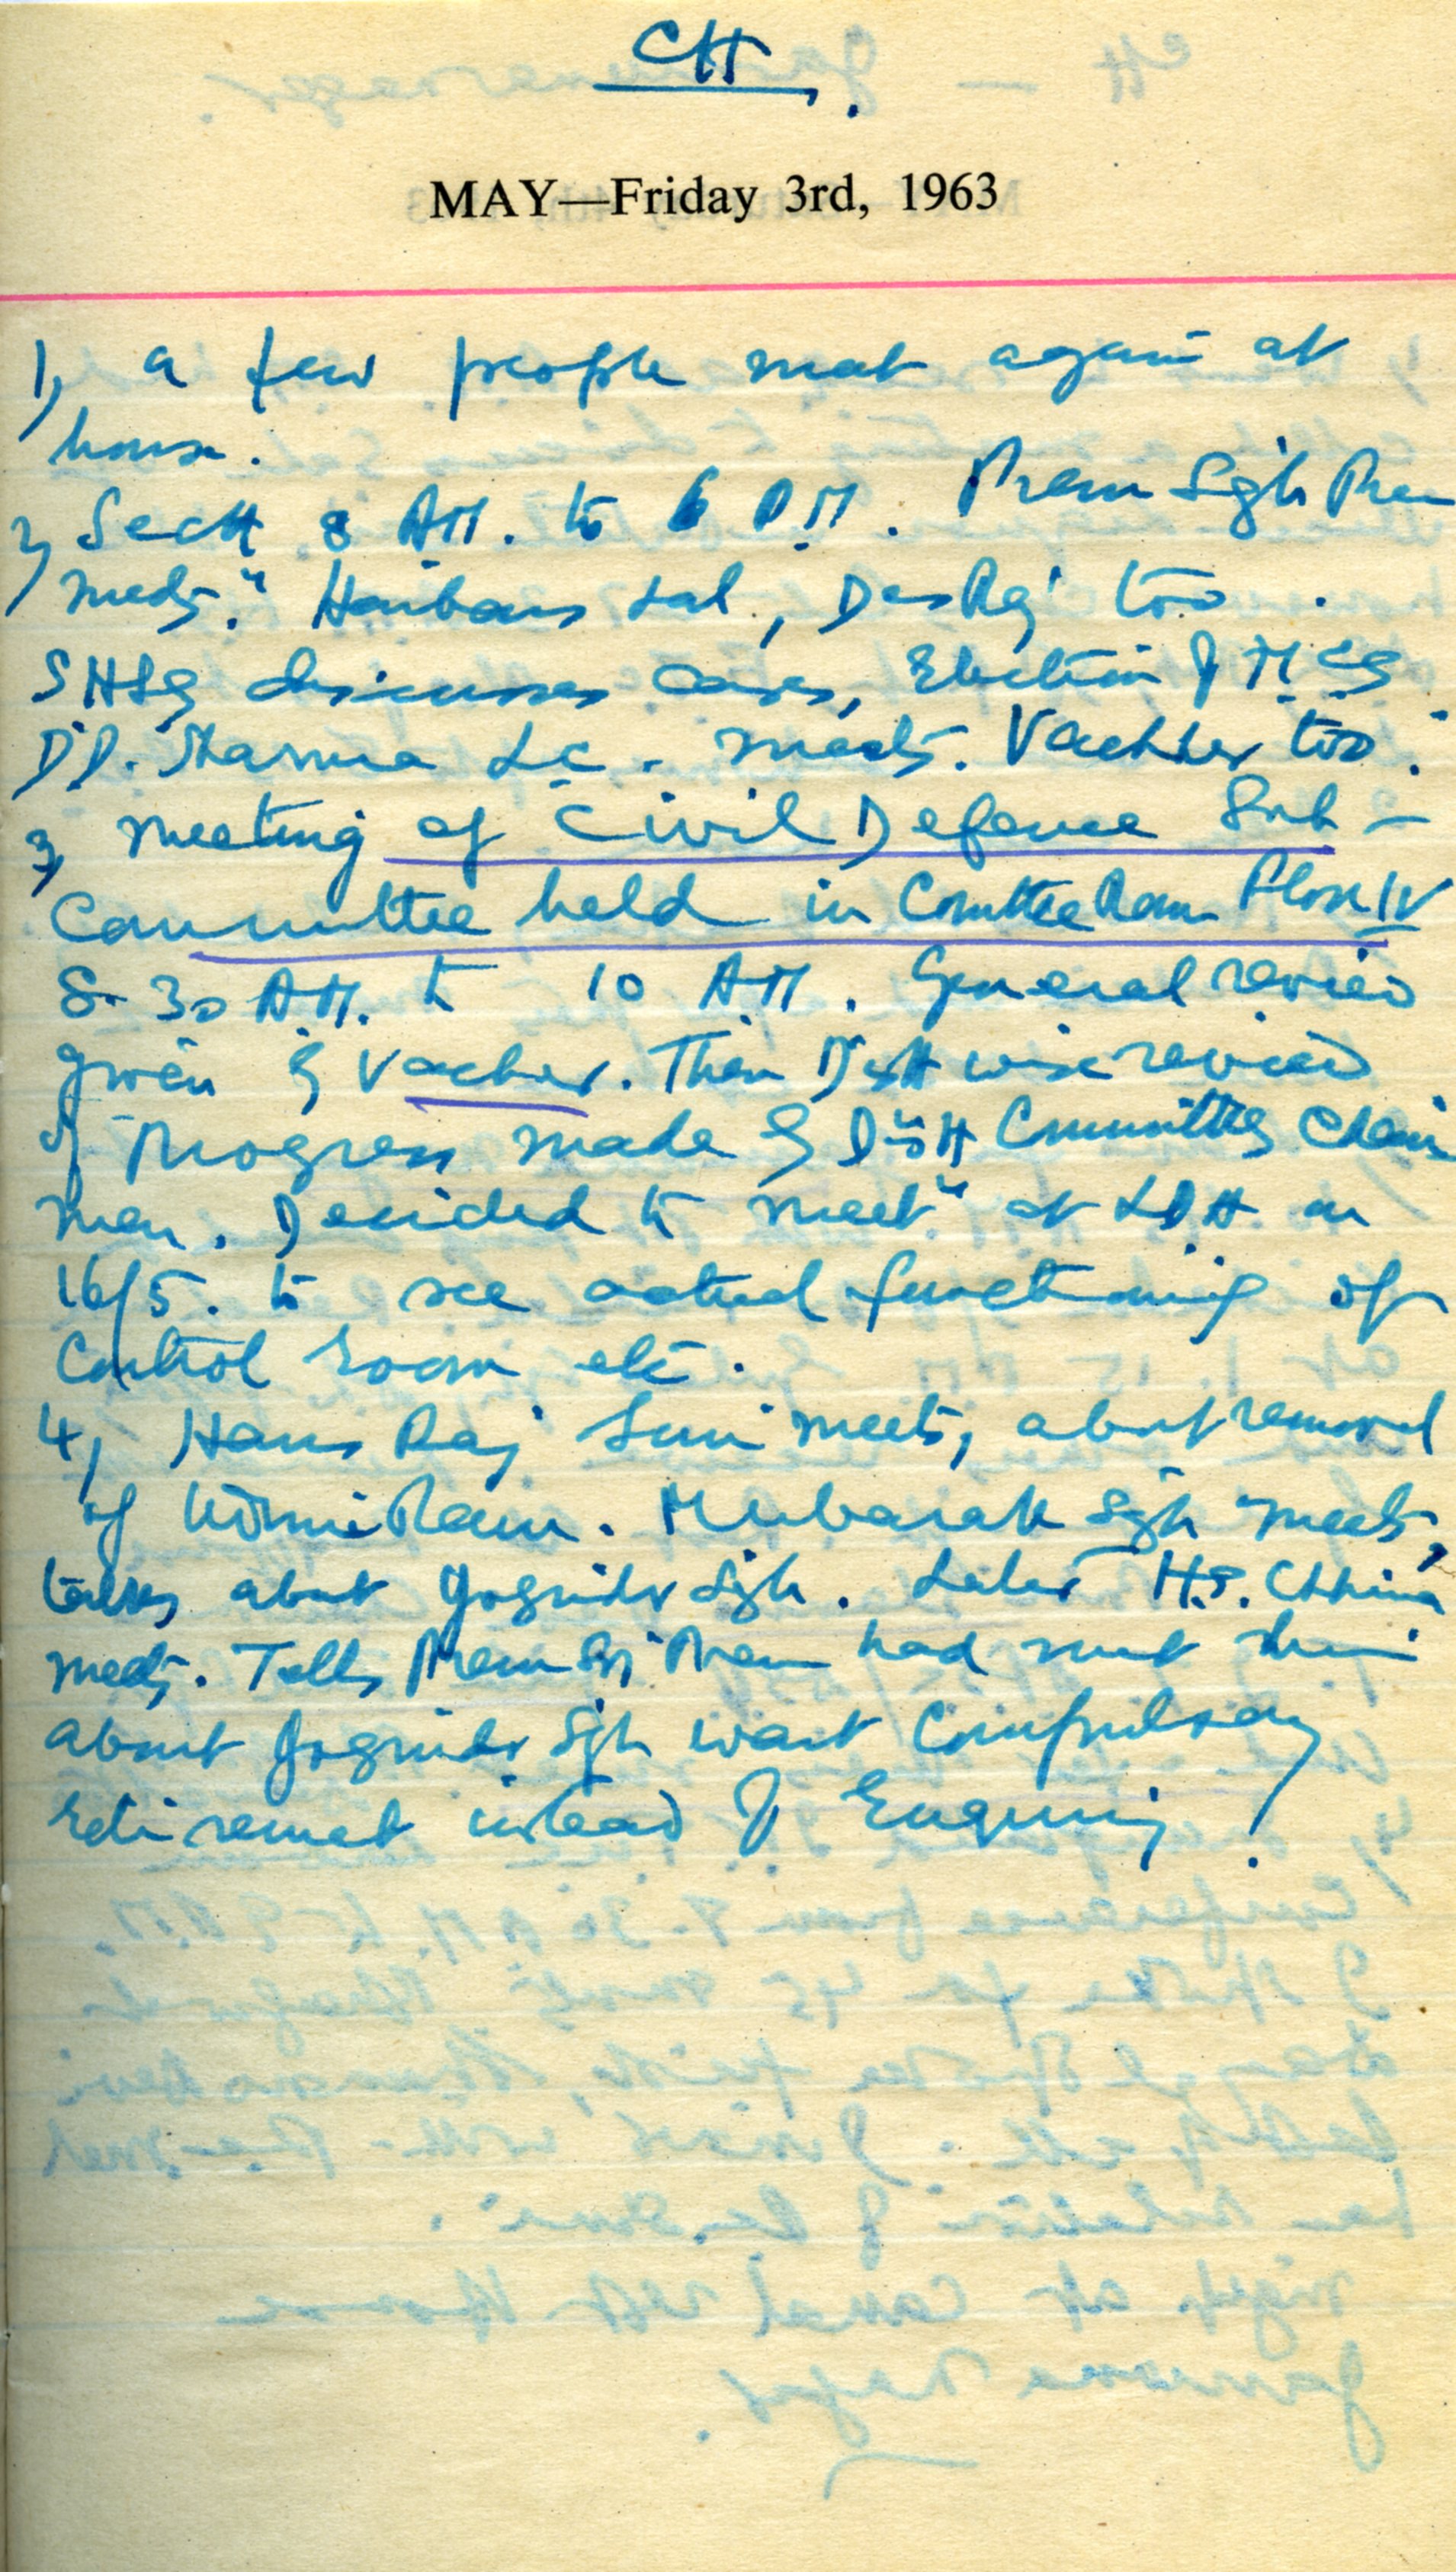 CH.
MAY—Friday 3rd, 1963
1, a few people met again at
house.
2, Sectt 8 AM. to 6 P.M. Prem Sgh Prem
meets. Haribans Lal, Des Raj too.
SHSG discusses cases, Election of M.C
D.D. Sharma L.C. meets. Vachher too.
3, Meeting of Civil Defence Sub-
Committee held in Comttee Room Floor IV
8-30 A.M. to 10 A.M. General review
given by Vachher. Then Distt wise review
of Progress made by Distt Committees Chair
men. Decided to meet at LDH on
16/5. to see actual functioning of
Control room etc.
4, Hans Raj meets, about removal
of Ram. Mubarak Sgh meets,
talks about Jogindr Sgh. Later H.S. Chhina
meets. Tells Prem Sgh Prem had met him
about Jogindr Sgh want Compulsory
retirement instead of Enquiry!